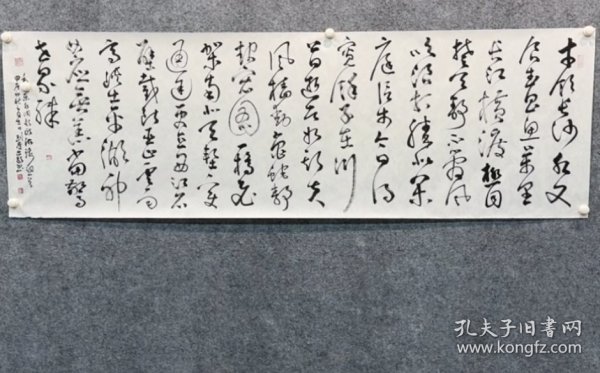 才饮长沙水又
食武昌鱼万里
长江横渡极目
楚天舒不管风
吹浪打胜似闲
庭信步今日得
宽馀子在川
上曰逝者如斯夫
风樯动龟蛇静
起宏图一桥飞
架南北天堑变
通途更立西江石
壁截断巫山云雨
高峡出平湖神
女应无恙当惊
世界殊
孔夫子旧书网
www.kongfz.com